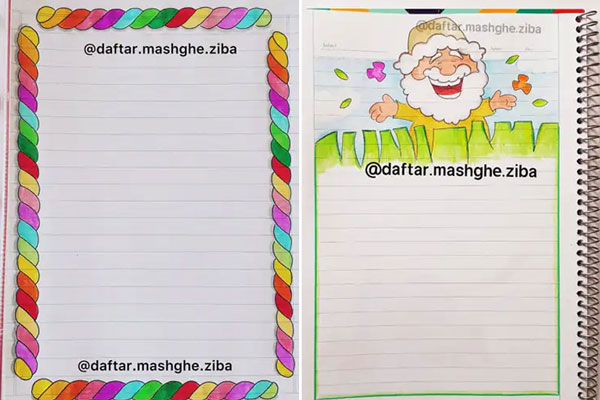 @daftar.mashghe.ziba
@daftar.mashghe.ziba
@daftar.mashghe.ziba
@daftar.mashghe.ziba